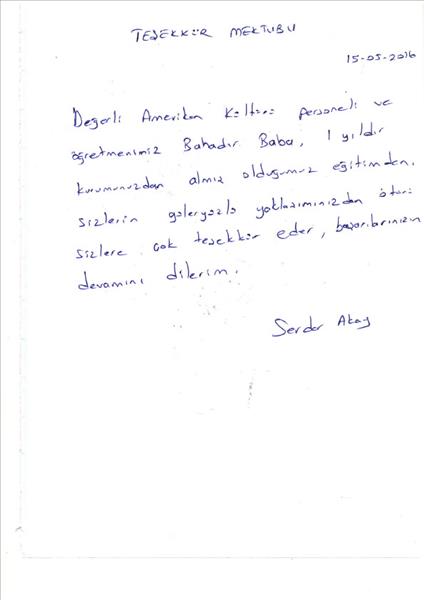 TEŞEKKÜR MEKTUBU
15-05-2016
Değerli Amerikan Kültür personeli ve
öğretmenimiz Bahadır Baba, 1 yıldır
kurumunuzdan almış olduğumuz eğitimden,
sizlerin güleryüzlü yaklaşımınızdan ötürü
sizlere çok teşekkür eder, başarılarınızın
devamını dilerim.
Serdar Akay